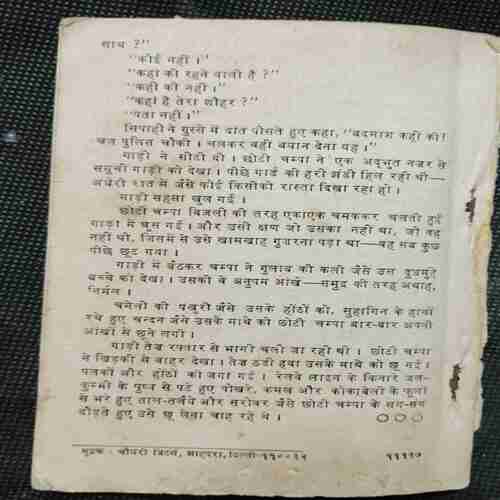 साथ ?"
"कोई नहीं ।"
"कहां की रहने वाली है ?"
"कहीं की नहीं ।"
"कहां है तेरा शौहर ?"
"पता नहीं ।"
सिपाही ने गुस्से में दांत पीसते हुए कहा, "बदमाश कहीं की!
चल पुलिस चौकी । चलकर वहीं बयान देना यह ।"
गाड़ी ने सीटी दी । छोटी चम्पा ने एक अद्भुत नजर से
समूची गाड़ी को देखा । पीछे गार्ड की हरी झंडी हिल रही थी—
अंधेरी रात में जैसे कोई किसीको रास्ता दिखा रहा हो ।
गाड़ी सहसा खुल गई ।
छोटी चम्पा बिजली की तरह एकाएक चमककर चलती हुई
गाड़ी में घुस गई । और उसी क्षण जो उसका नहीं था, जो वह
नहीं थी, जिसमें से उसे खामखाह गुजरना पड़ा था—वह सब कुछ
पीछे छूट गया ।
गाड़ी में बैठकर चम्पा ने गुलाब की कली जैसे उस दुधमुंहे
बच्चे को देखा । उसकी वे अनुपम आंखें—समुद्र की तरह अथाह,
निर्मल ।
चमेली की पंखुरी जैसे उसके होंठों को, सुहागिन के हाथों
रचे हुए चन्दन जैसे उसके माथे को छोटी चम्पा बार-बार अपनी
आंखों से छूने लगी ।
गाड़ी तेज रफ्तार से भागी चली जा रही थी । छोटी चम्पा
ने खिड़की से बाहर देखा । तेज ठंडी हवा उसके माथे को छू गई ।
पलकों और होंठों को जगा गई । रेलवे लाइन के किनारे जल-
कुम्भी के पुष्प से पटे हुए पोखरे, कमल और कोकाबेली के फूलों
से भरे हुए ताल-तलैये और सरोवर जैसे छोटी चम्पा के संग-संग
दौड़ते हुए उसे छू लेना चाह रहे थे । ○○○
मुद्रक : चौधरी प्रिंटर्स, शाहदरा, दिल्ली-११००३२